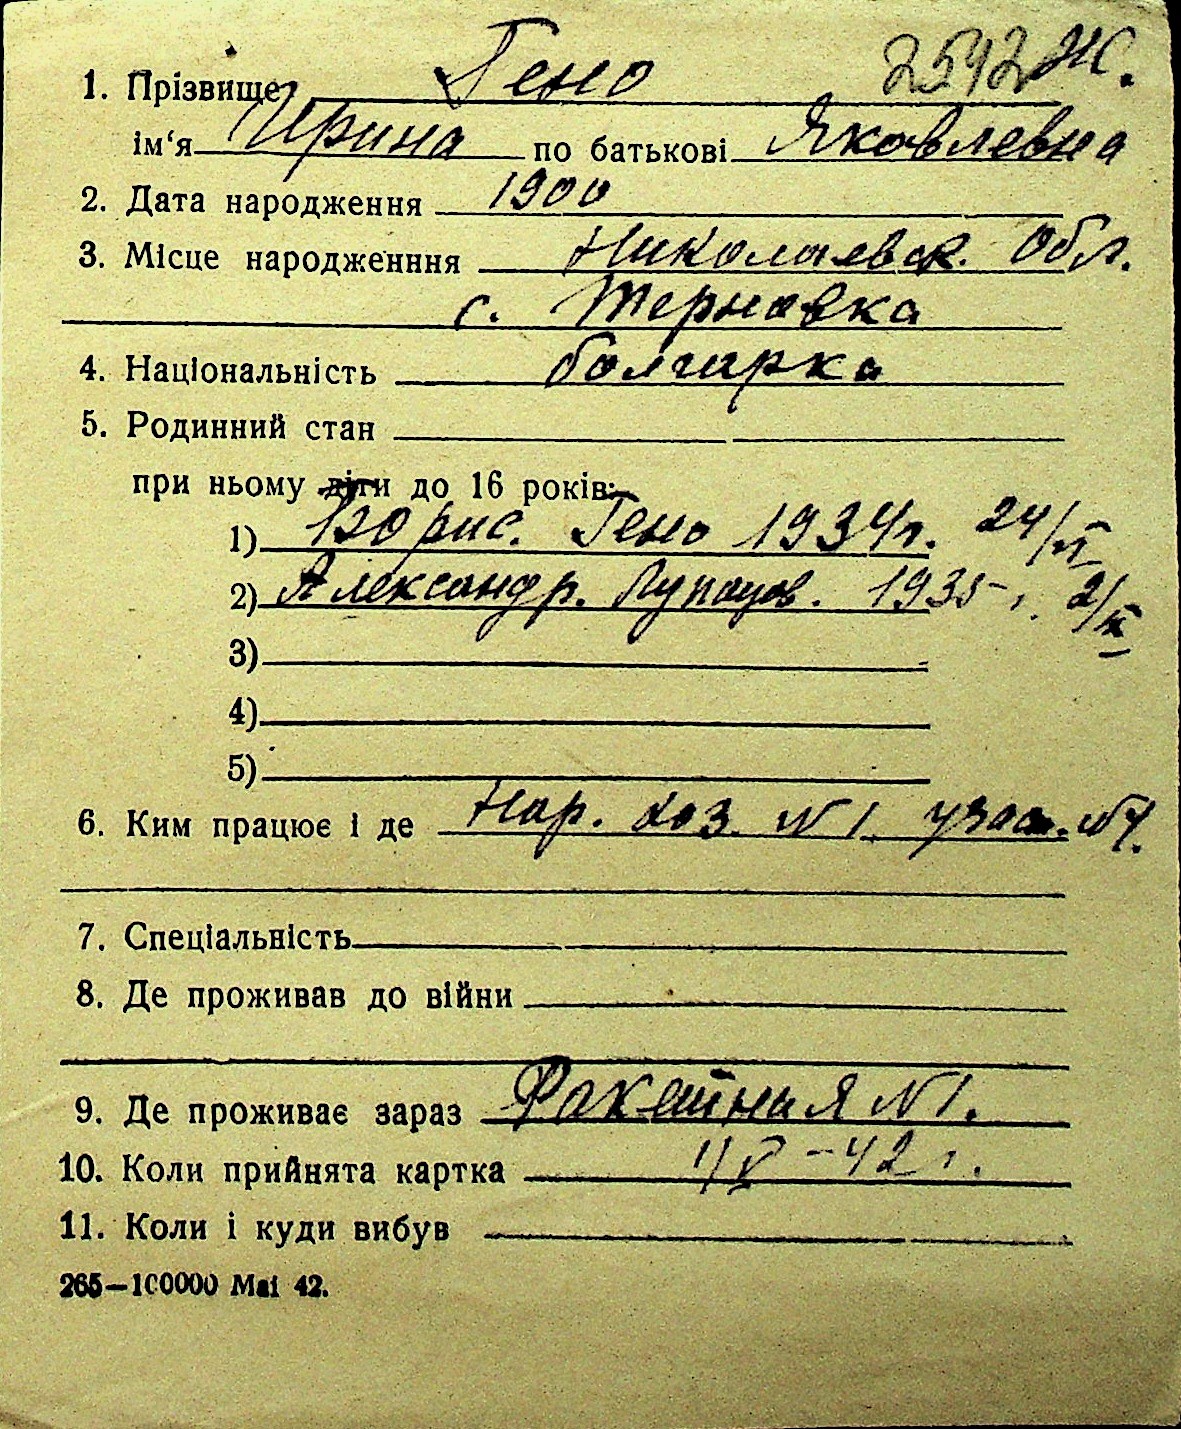 2542 Ж.
1. Прізвище Гено
ім‘я Ирина по батькові Яковлевна
2. Дата народження 1900
3. Місце народженння Николаевск. Обл.
с. Терновка
4. Національність болгарка
5. Родинний стан
при ньому діти до 16 років:
1) Борис. Гено 1934г. 24/VI
2) Александр. 1935 г. 2/IX
3)
4)
5)
6. Ким працює і де Нар. хоз. №1
7. Спеціальність
8. Де проживав до війни
9. Де проживає зараз Ракетная №1.
10. Коли прийнята картка 1/V-42 г.
11. Коли і куди вибув
265—100000 Маі 42.